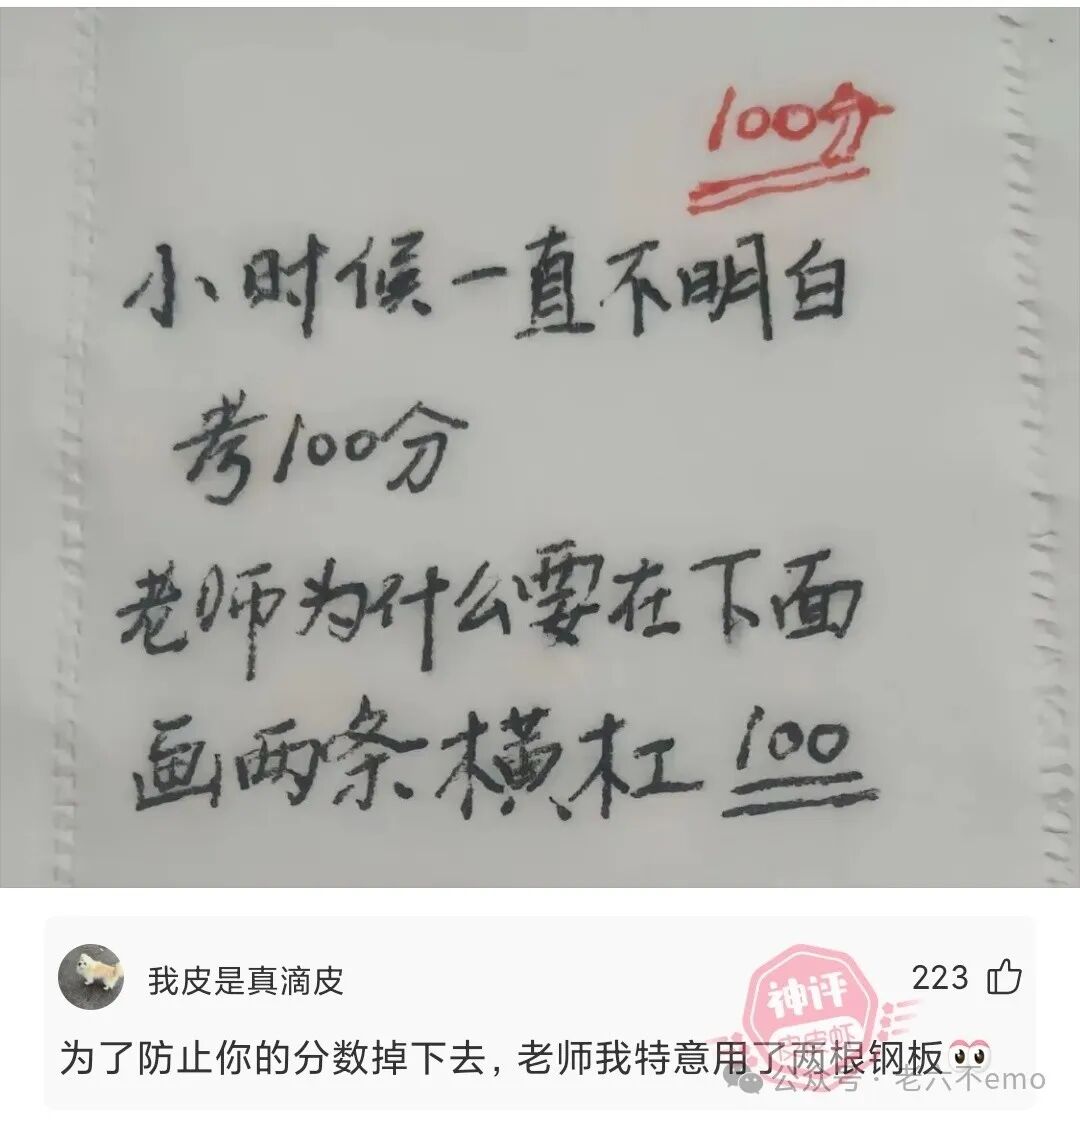 100分
小时候一直不明白
考100分
老师为什么要在下面
画两条横杠 100
我皮是真滴皮
223
神评
皮皮虾
为了防止你的分数掉下去，老师我特意用了两根钢板👀
公众号 · 老六不emo